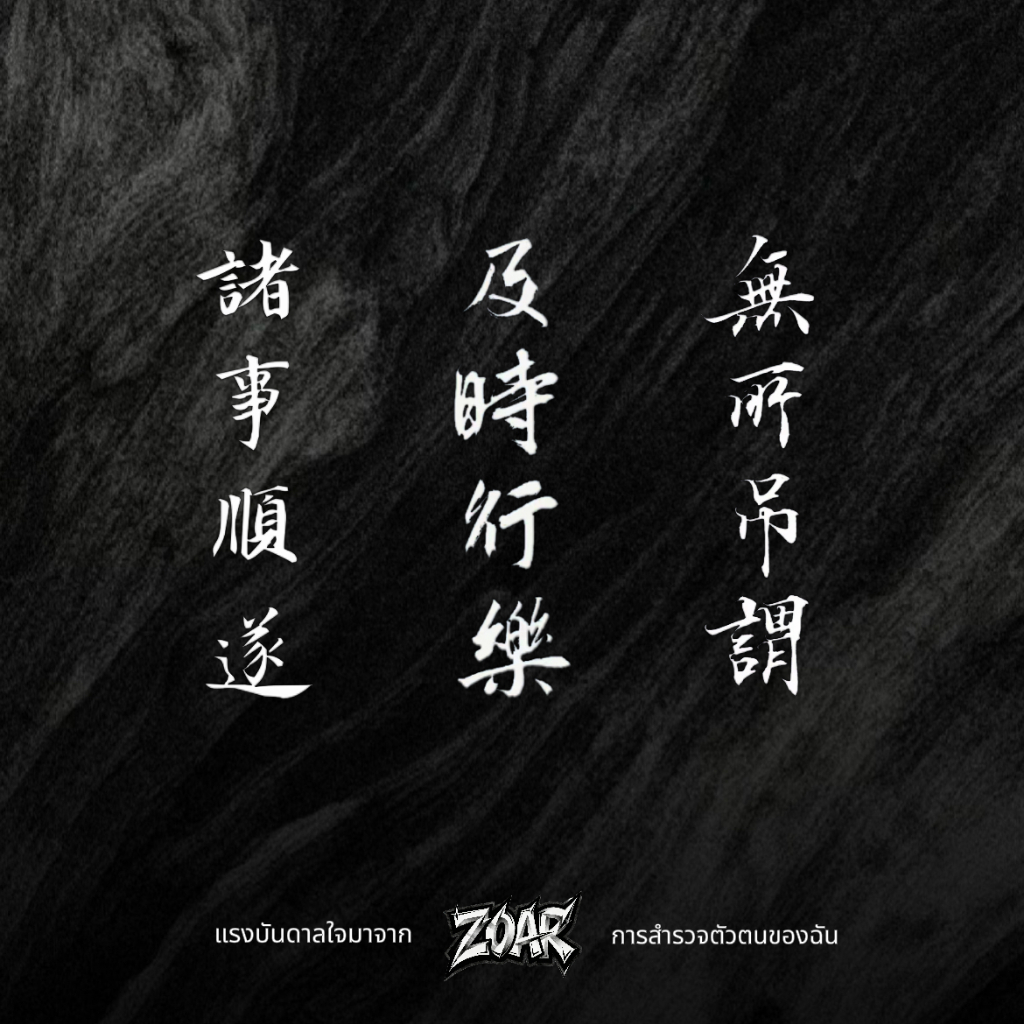 無所吊謂
及時行樂
諸事順遂
แรงบันดาลใจมาจาก ZOAR การสำรวจตัวตนของฉัน